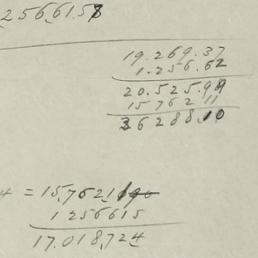 256,61.58
19.269.37
1.256.62
20.525.99
15762 11
36288.10
4 = 15,7621
1256615
17.018,724